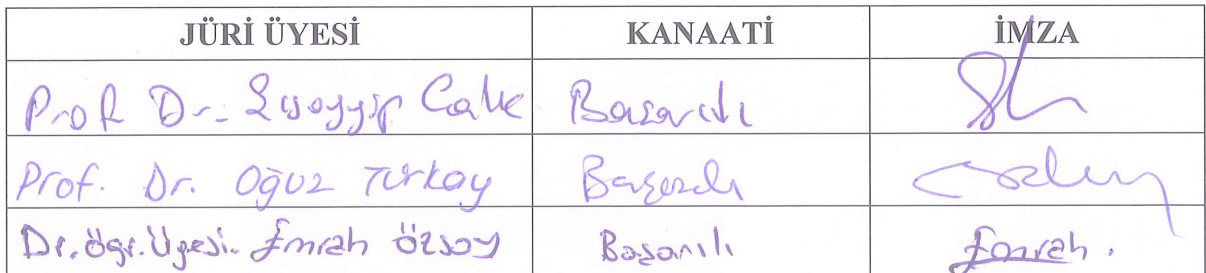 JÜRİ ÜYESİ KANAATİ İMZA
Prof. Dr. Başarılı
Prof. Dr. Oğuz Türkay Başarılı
Dr. Öğr. Üyesi. Emrah Özsoy Başarılı Emrah.